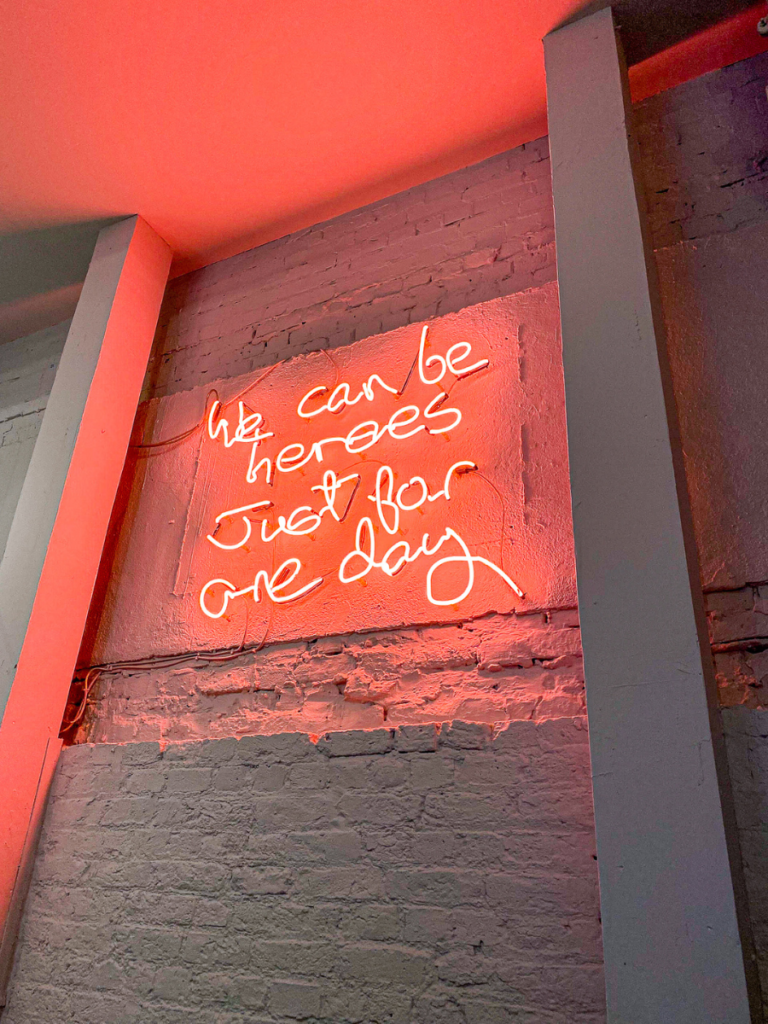 We can be
heroes
Just for
one day